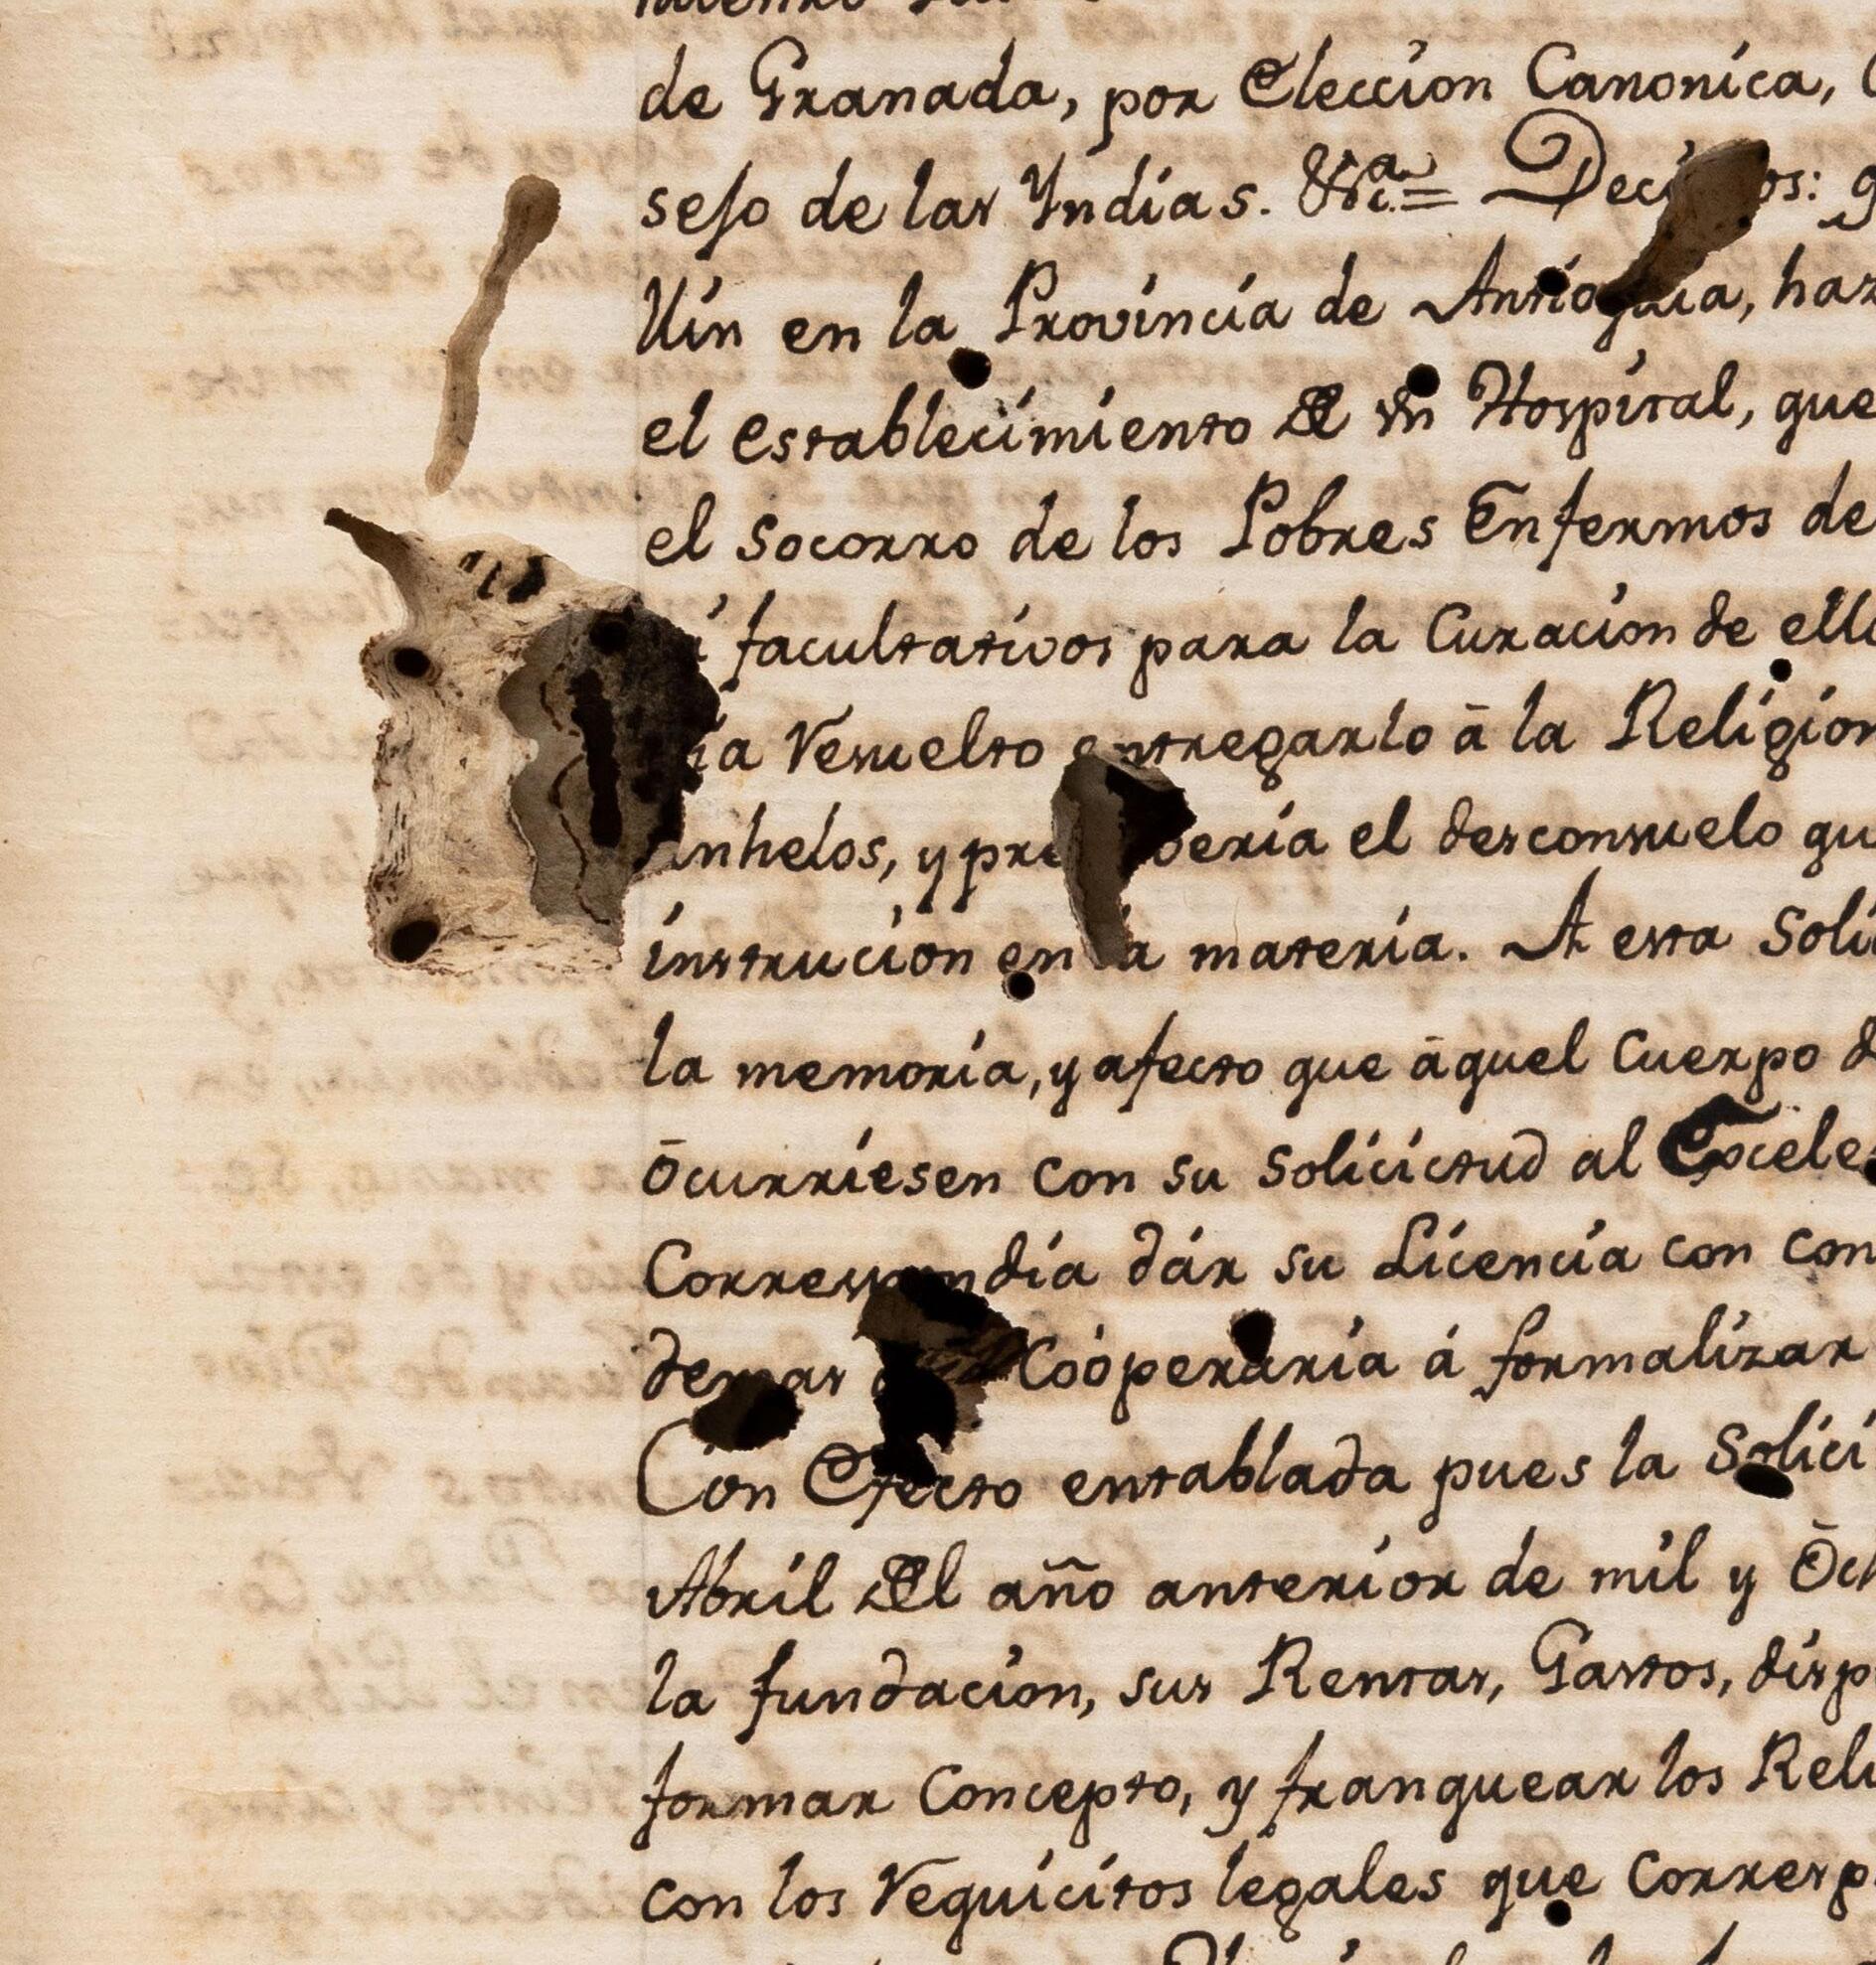 de Granada, por Eleccion Canonica,
seso de las Yndias. &c.a = Decimos:
llin en la Provincia de Antioquia, haz
el establecimiento del un Hospital, que
el socorro de los Pobres Enfermos de
facultativos para la Curacion de ello
ia resuelto entregarlo â la Religion
anhelos, y pre beria el desconsuelo qu
instrucion en la materia. A esta Soli
la memoria, y afecto que âquel Cuerpo d
ôcurriesen con su solicictud al Excele
Correspondia dár su Licencia con con
demas Coóperaria á formalizar
Con Efecto entablada pues la Solici
Abril del año anterior de mil y Och
la fundacion, sus Rentas, Gastos, disp
formar Concepto, y franquear los Reli
con los requicitos legales que Corresp